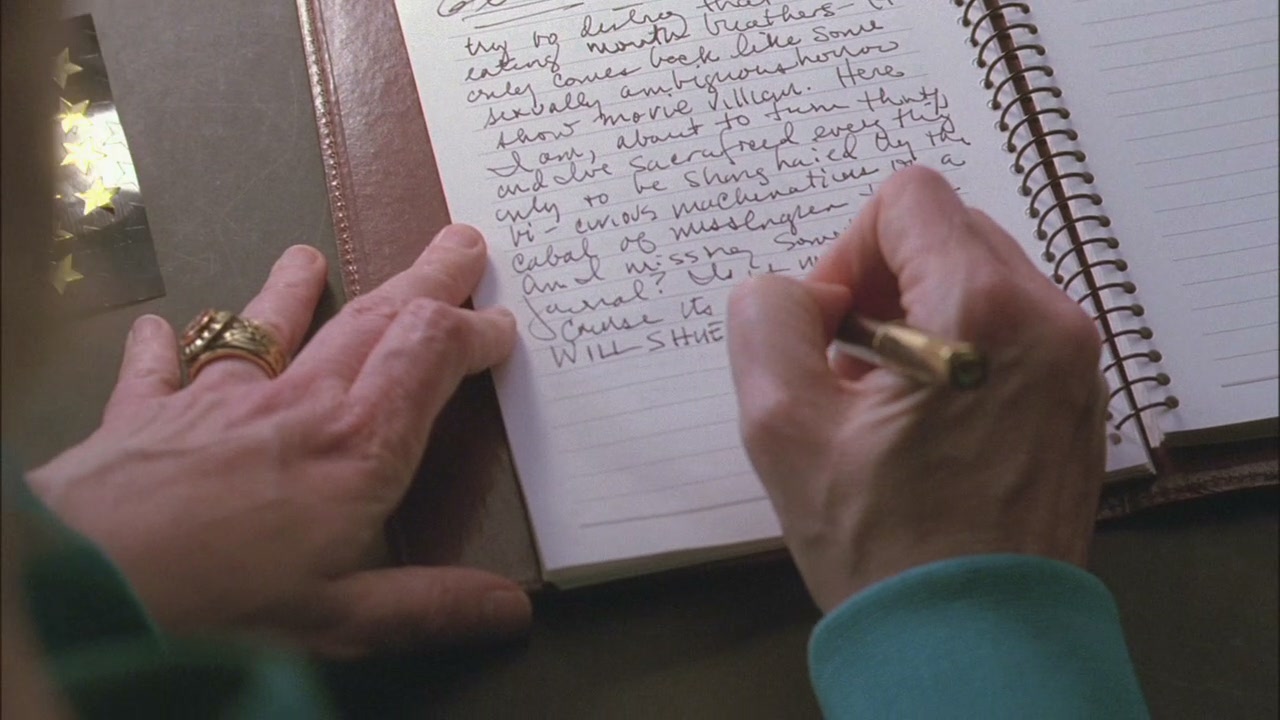 try to destroy that
eating mouth breathers-
only comes back like some
sexually ambiguous horror
show movie villian. Here
I am, about to turn thirty
and I've sacrafreed everything
only to be shanghaied by the
bi-curious machenations of a
cabal of
am I missing
journal? Is it
Cause its
WILL SHUE